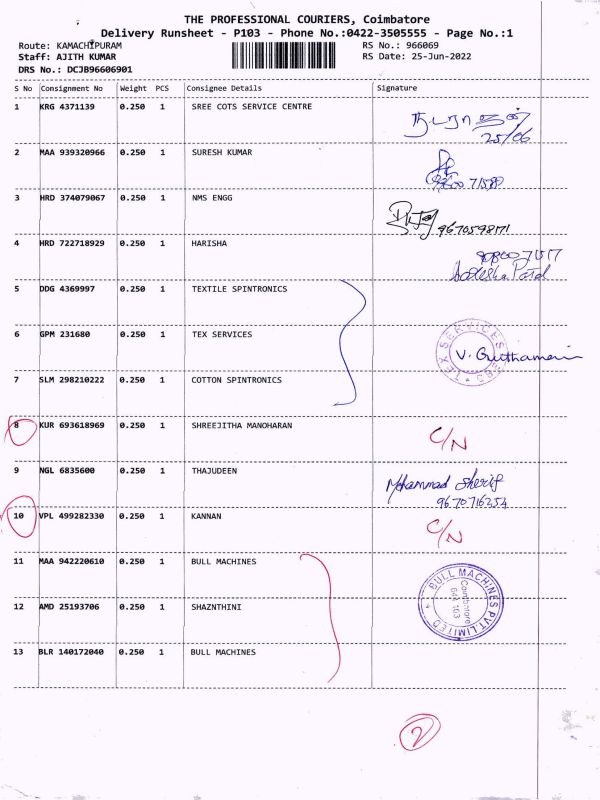 THE PROFESSIONAL COURIERS, Coimbatore
Delivery Runsheet - P103 - Phone No.:0422-3505555 - Page No.:1
Route: KAMACHIPURAM RS No.: 966069
Staff: AJITH KUMAR RS Date: 25-Jun-2022
DRS No.: DCJB96606901
S No Consignment No Weight PCS Consignee Details Signature
1 KRG 4371139 0.250 1 SREE COTS SERVICE CENTRE
25/06
2 MAA 939320966 0.250 1 SURESH KUMAR
3 HRD 374079067 0.250 1 NMS ENGG
9670598171
4 HRD 722718929 0.250 1 HARISHA
5 DDG 4369997 0.250 1 TEXTILE SPINTRONICS
6 GPM 231680 0.250 1 TEX SERVICES
TEX SERVICES
7 SLM 298210222 0.250 1 COTTON SPINTRONICS
8 KUR 693618969 0.250 1 SHREEJITHA MANOHARAN C/N
9 NGL 6835600 0.250 1 THAJUDEEN Mohammad Sherif
9670716254
10 VPL 499282330 0.250 1 KANNAN C/N
11 MAA 942220610 0.250 1 BULL MACHINES
BULL MACHINES PVT.LIMITED
Coimbatore
641 103
12 AMD 25193706 0.250 1 SHAZNTHINI
13 BLR 140172040 0.250 1 BULL MACHINES
2